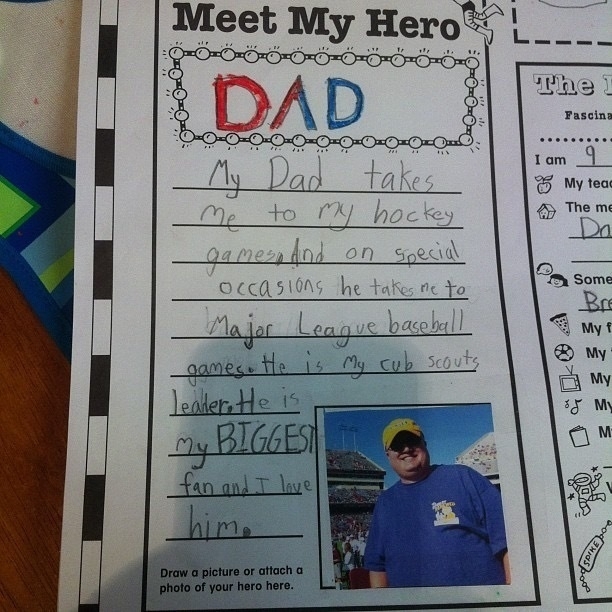 Meet My Hero
DAD
My Dad takes
me to my hockey
games. And on special
occasions he takes me to
Major League baseball
games. He is my cub scouts
leader. He is
my BIGGEST
fan and I love
him.
Draw a picture or attach a
photo of your hero here.
The
Fascina
I am 9
My teac
The me
Da
Some
Bre
My f
My
My
My
M
SPIKE